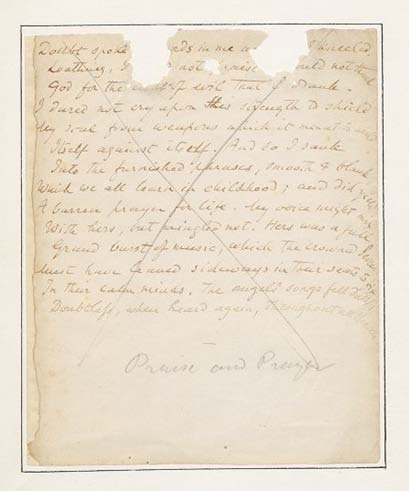 Doubt spoke in me kneeled
Loathing, I not praise could not thank
God for the of evil that I drank –
I dared not cry upon His strength to shield
My soul from weapons which it meant to
Itself against itself. And so I sank
Into the furnished phrases, smooth & blank
Which we all learn in childhood; and did yield
A barren prayer for life. My voice might mix
With hers, but mingled not. Hers was a full
Grand burst of music, which the crowned Seven
Must have leaned sideways in their seats to fix
In their calm minds. The angels' songs fell dull
Doubtless, when heard again, throughout
Praise and Prayer